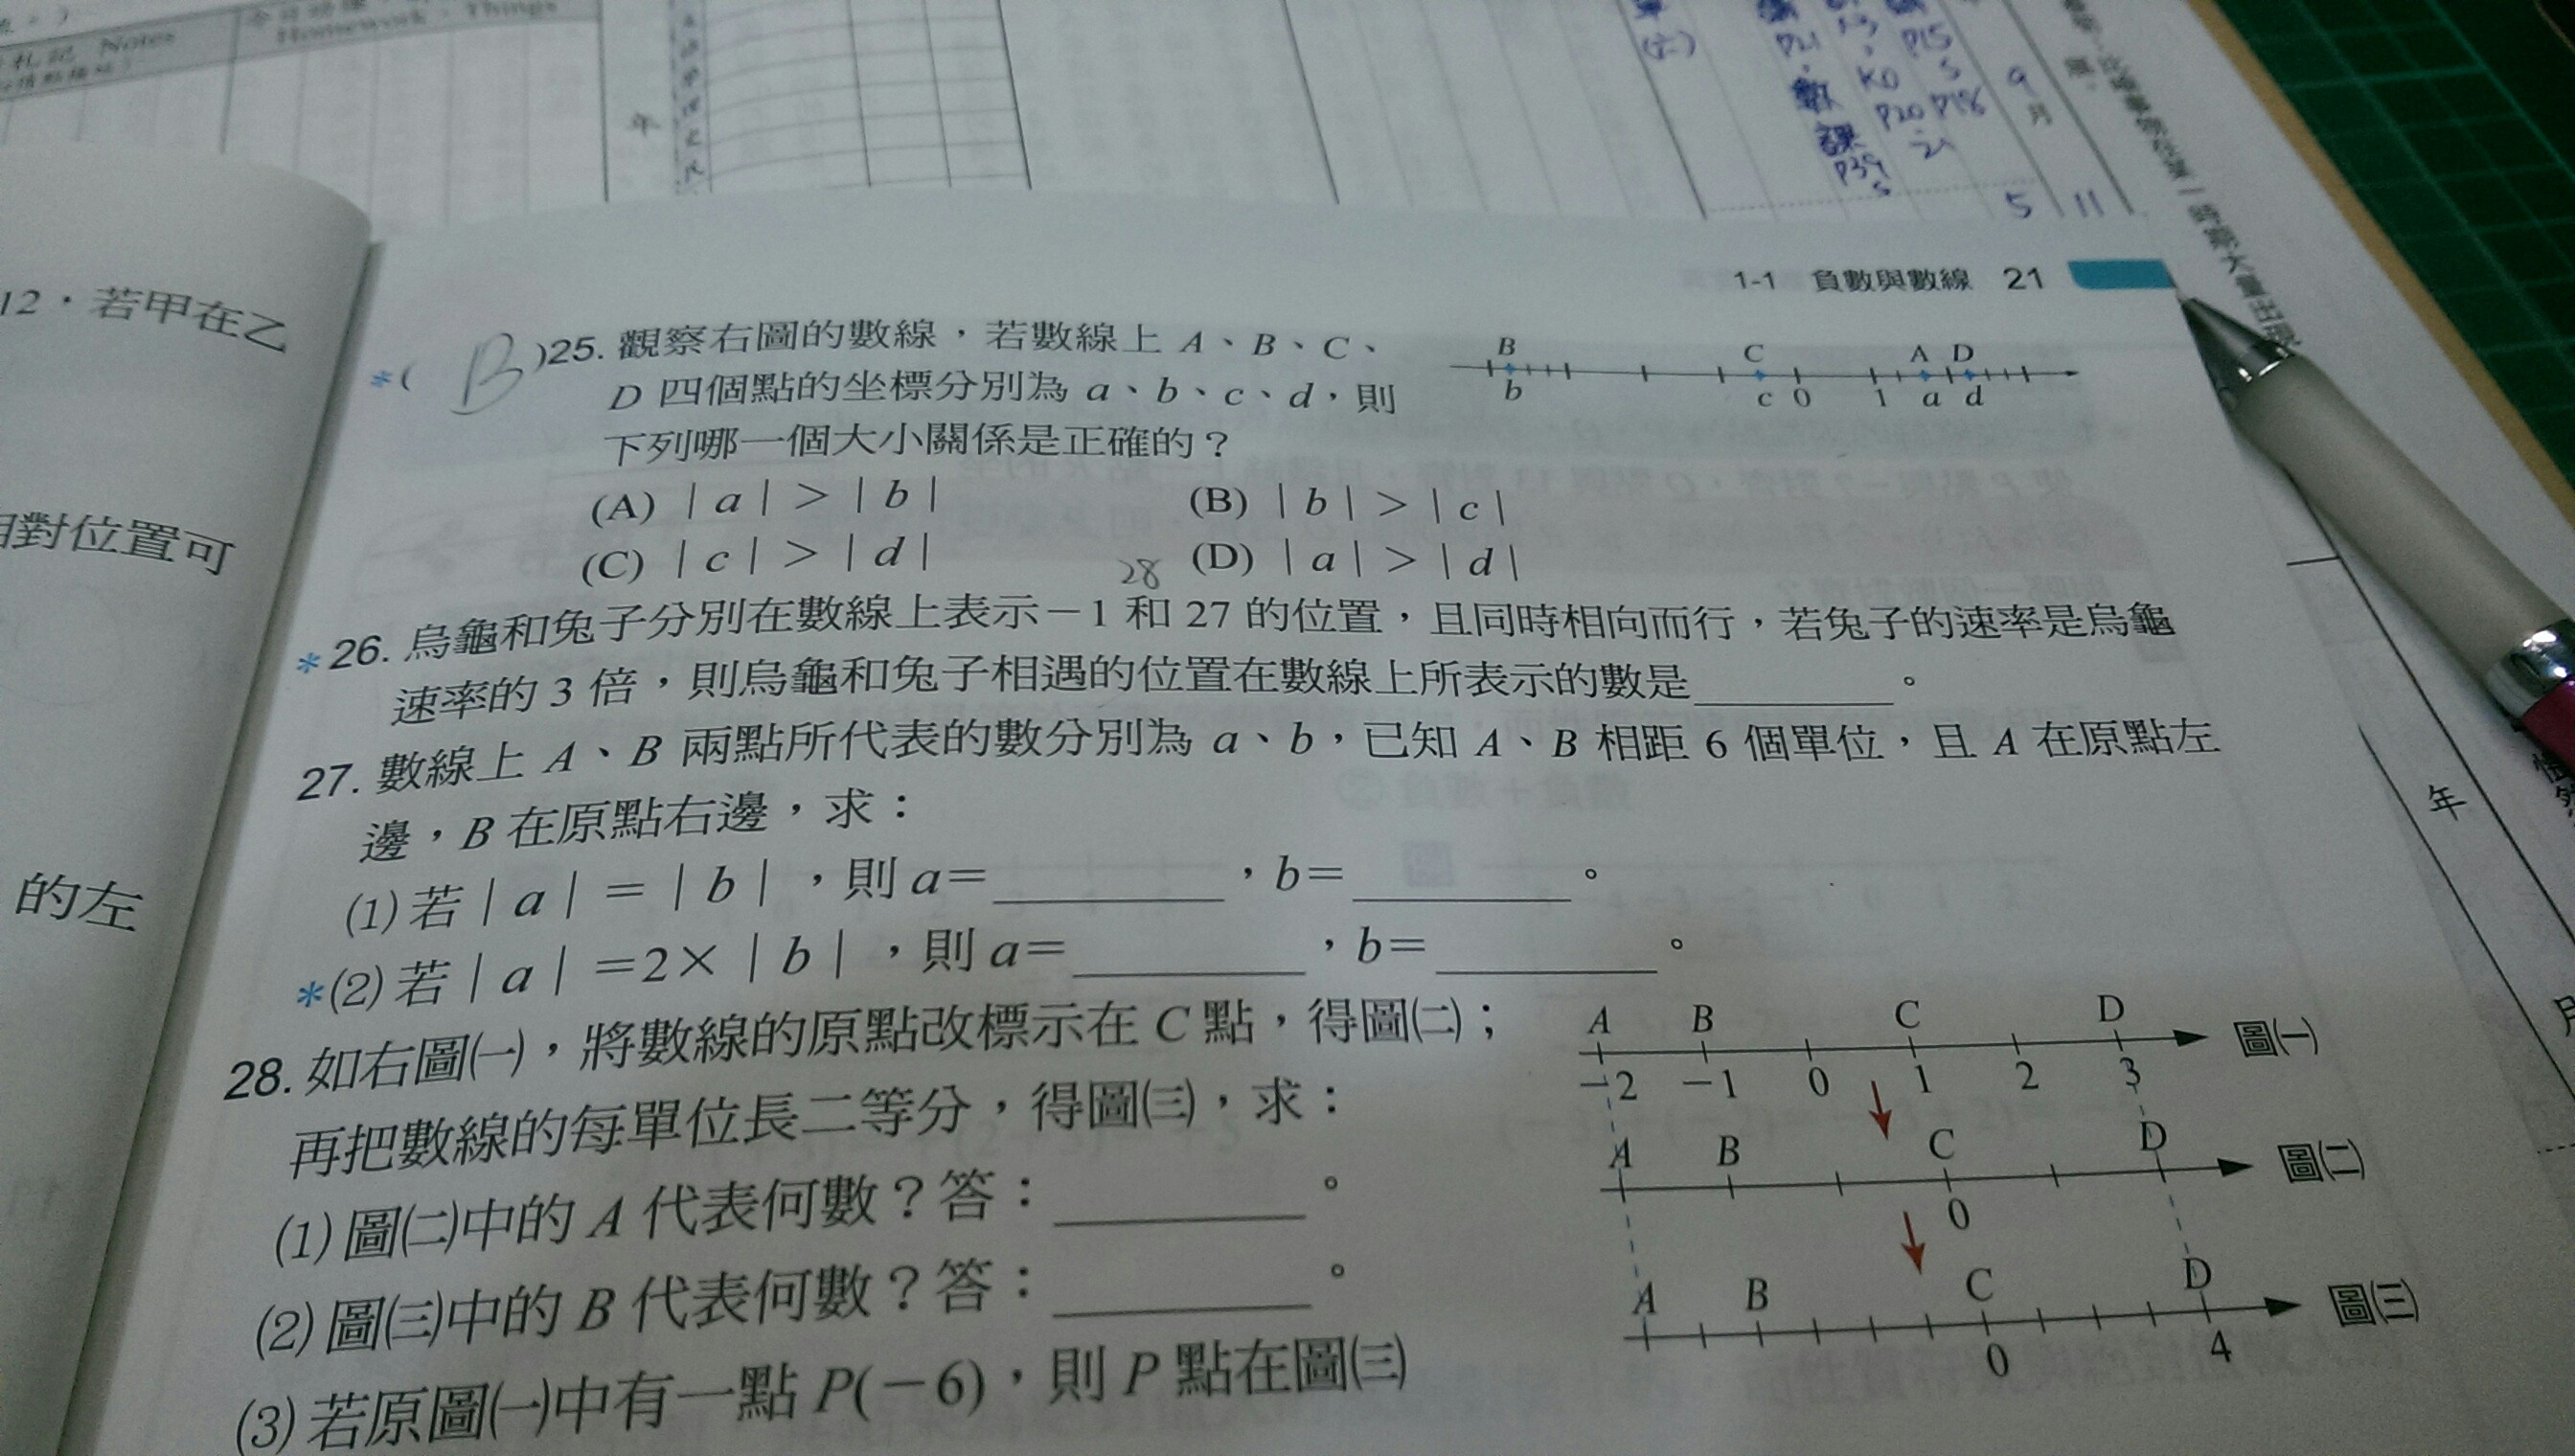 札記 Notes
Homework．Things
年
(六)
P21
P15
K0
P20
P18
9
月
課
P39
5
11
12，若甲在乙
相對位置可
的左
1-1 負數與數線 21
*( B )25. 觀察右圖的數線，若數線上 A、B、C、
D 四個點的坐標分別為 a、b、c、d，則
下列哪一個大小關係是正確的？
B C A D
b c 0 1 a d
(A) | a | > | b | (B) | b | > | c |
(C) | c | > | d | (D) | a | > | d |
28
* 26. 烏龜和兔子分別在數線上表示－1 和 27 的位置，且同時相向而行，若兔子的速率是烏龜
速率的 3 倍，則烏龜和兔子相遇的位置在數線上所表示的數是________。
27. 數線上 A、B 兩點所代表的數分別為 a、b，已知 A、B 相距 6 個單位，且 A 在原點左
邊，B 在原點右邊，求：
(1) 若 | a | = | b |，則 a=________，b=________。
*(2) 若 | a | =2× | b |，則 a=________，b=________。
28. 如右圖㈠，將數線的原點改標示在 C 點，得圖㈡；
再把數線的每單位長二等分，得圖㈢，求：
(1) 圖㈡中的 A 代表何數？答：________。
(2) 圖㈢中的 B 代表何數？答：________。
(3) 若原圖㈠中有一點 P(－6)，則 P 點在圖㈢
A B C D
－2 －1 0 1 2 3 圖㈠
A B C D
0 圖㈡
A B C D
0 4 圖㈢
年
月